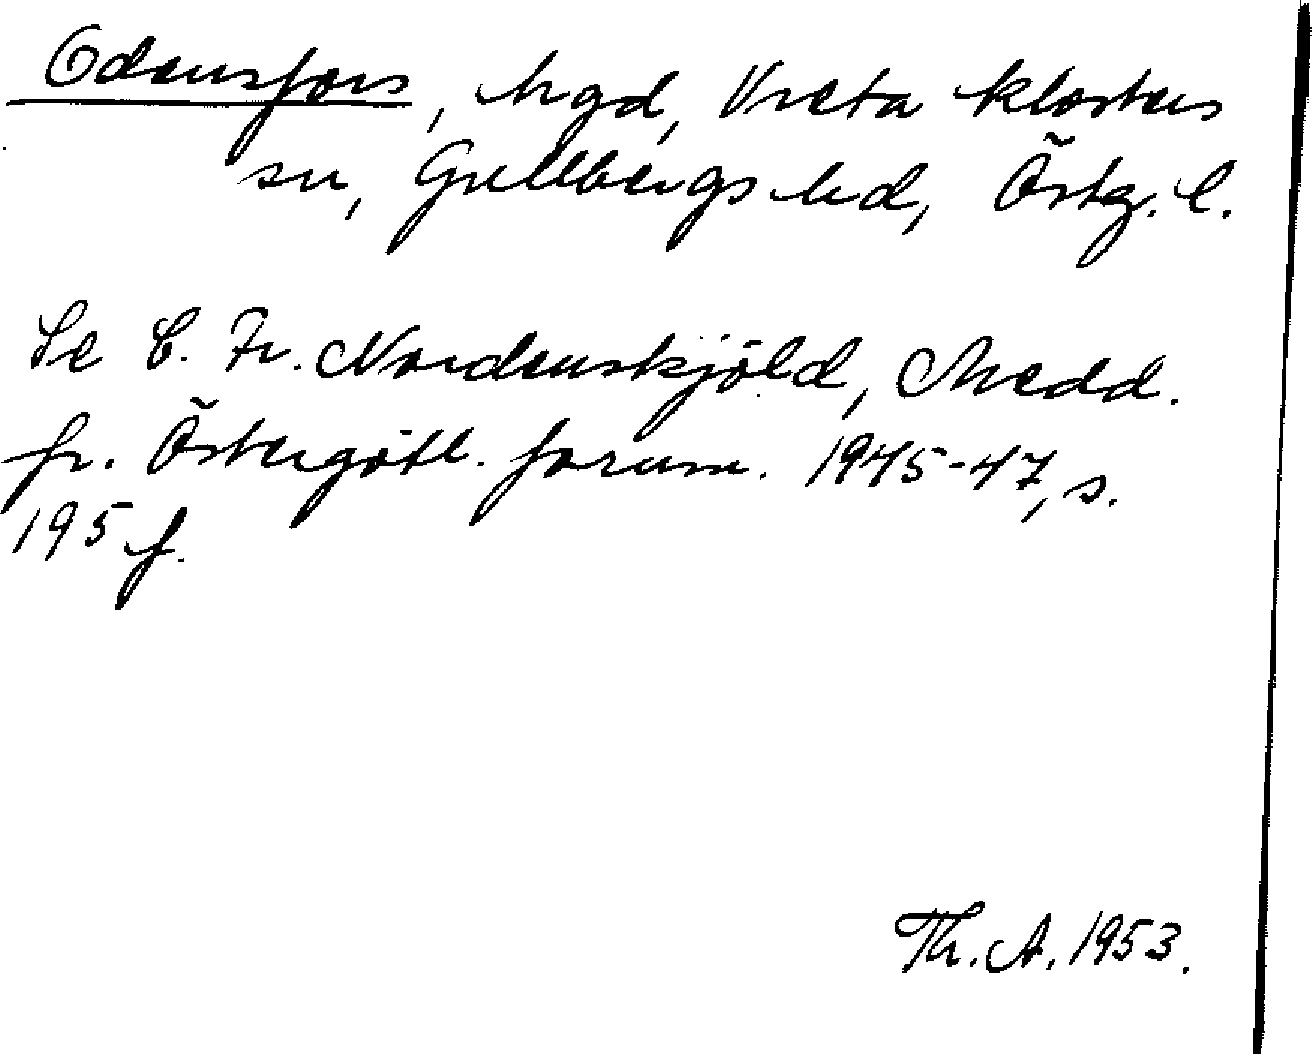 Odensfors, hgd, Vreta klosters
sn, Gullbergs hd, Östg. l.
Se C. Fr. Nordenskjöld, Medd.
fr. Östergötl. fornm. 1945-47, s.
195 f.
Th. A. 1953.